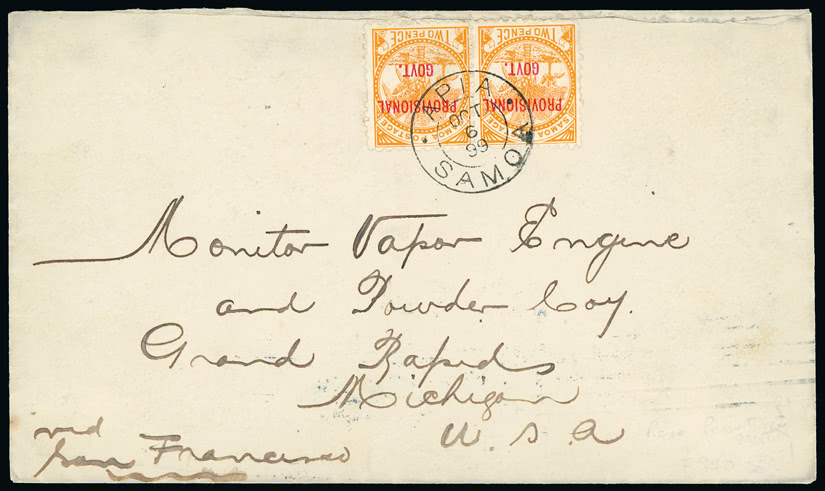 TWO PENCE TWO PENCE
GOVT. GOVT.
PROVISIONAL PROVISIONAL
SAMOA POSTAGE SAMOA POSTAGE
APIA
OCT
6
99
SAMOA
Monitor Vapor Engine
and Powder Coy.
Grand Rapids
Michigan
U. S. A
via
San Francisco